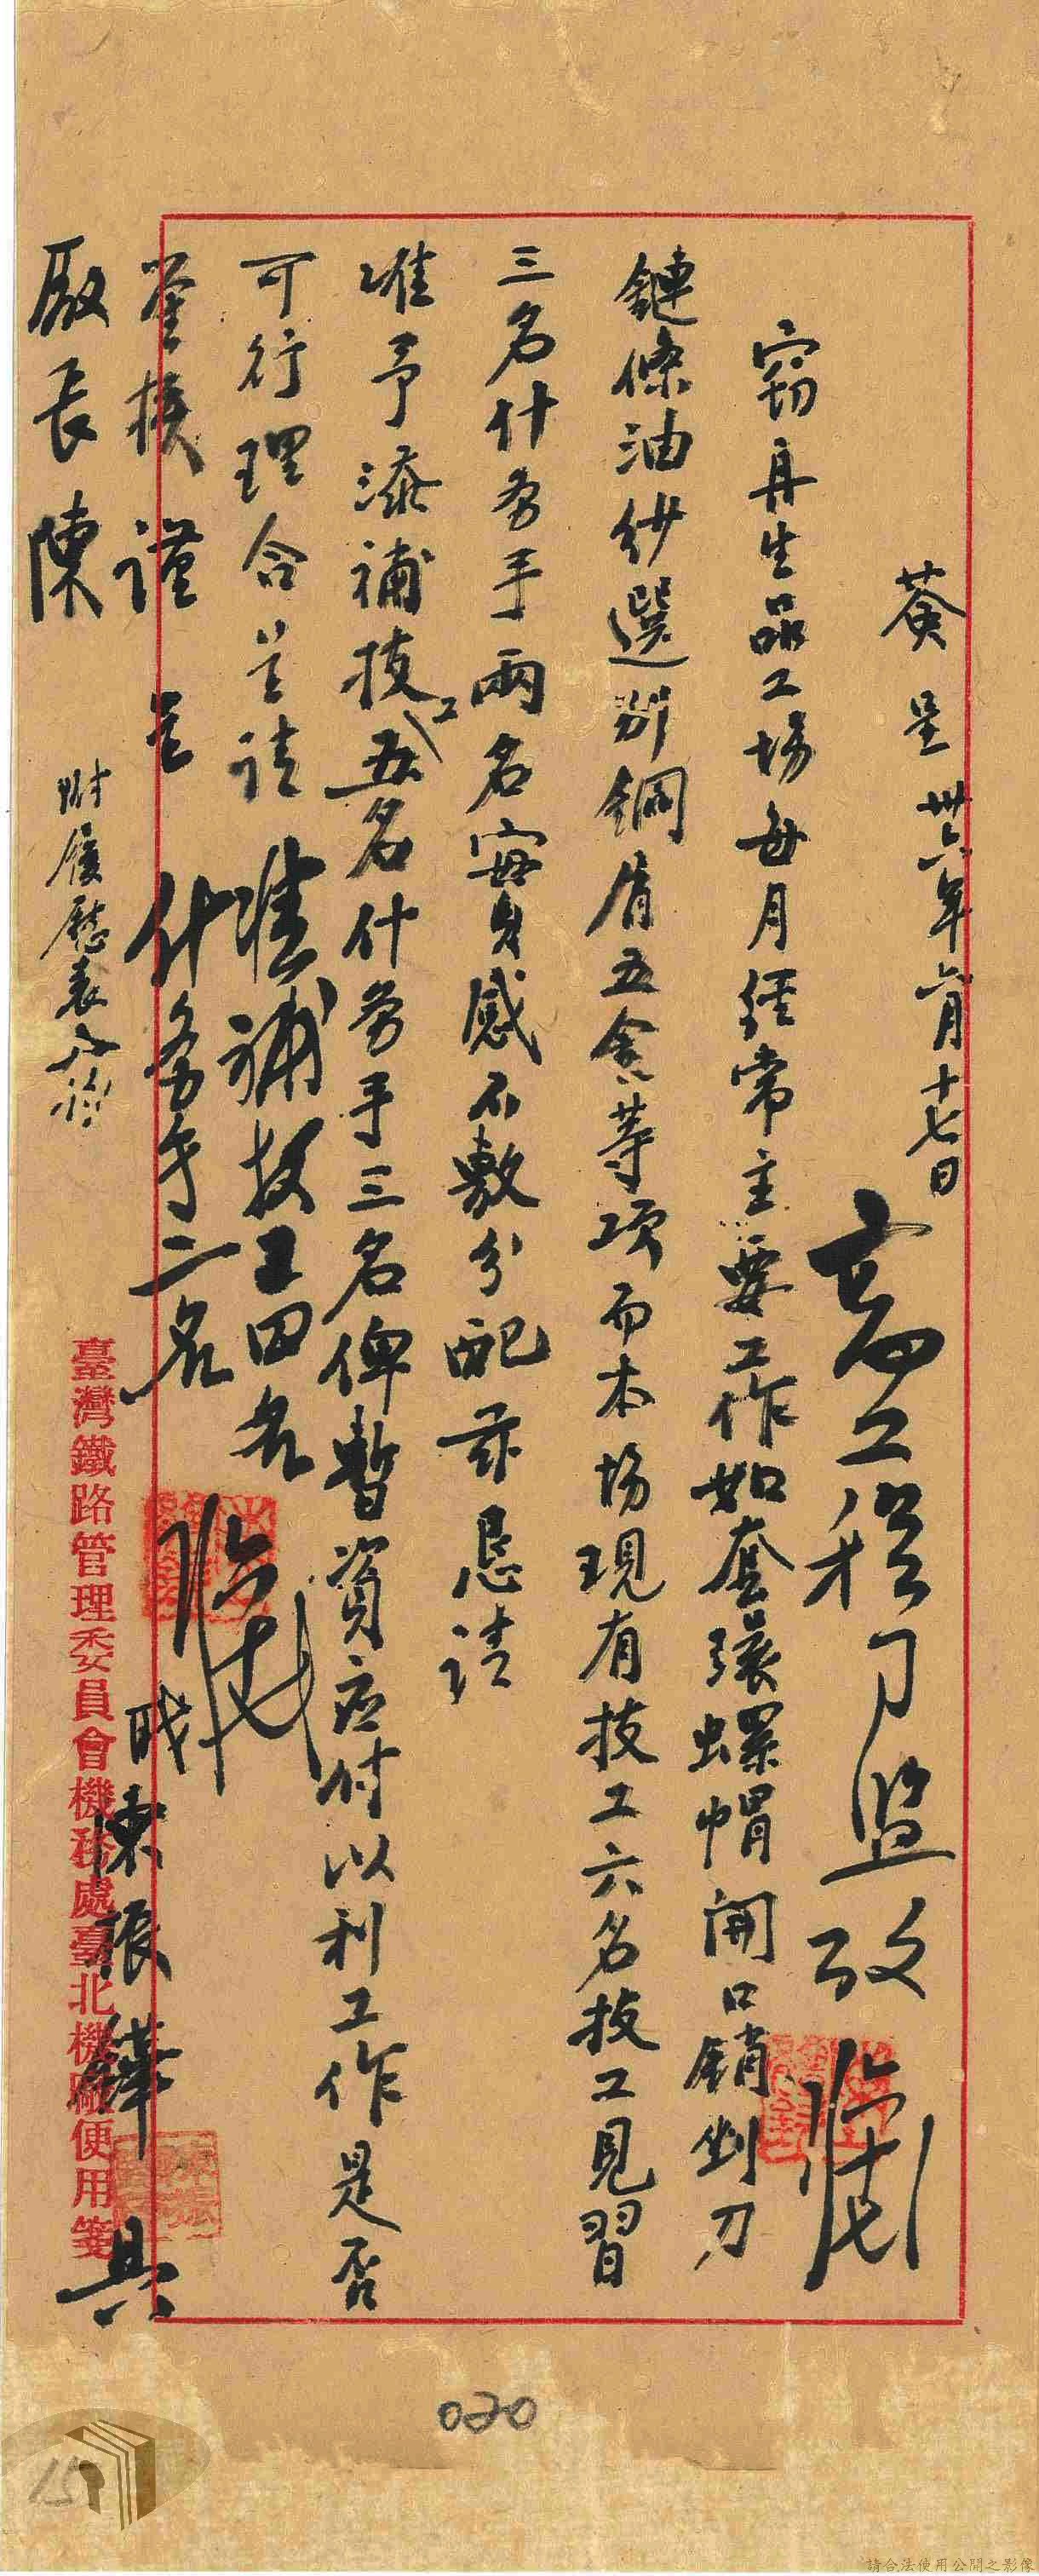 簽呈 卅六年六月十七日
竊再生品工場每月經常主要工作如套環螺帽開口銷剉刀
鏈條油紗選別銅屑五金等項而本場現有技工六名技工見習
三名什务手兩名實身感不敷分配茲忌請
准予添補技工五名什务手三名俾暫資应付以利工作是否
可行理合呈請
鉴核謹呈
廠長陳
附履歷表八份
職陳振鏵具
准補技工四名
什务手二名
工程司
臺灣鐵路管理委員會機務處臺北機廠便用箋
020
15
請合法使用公開之影像